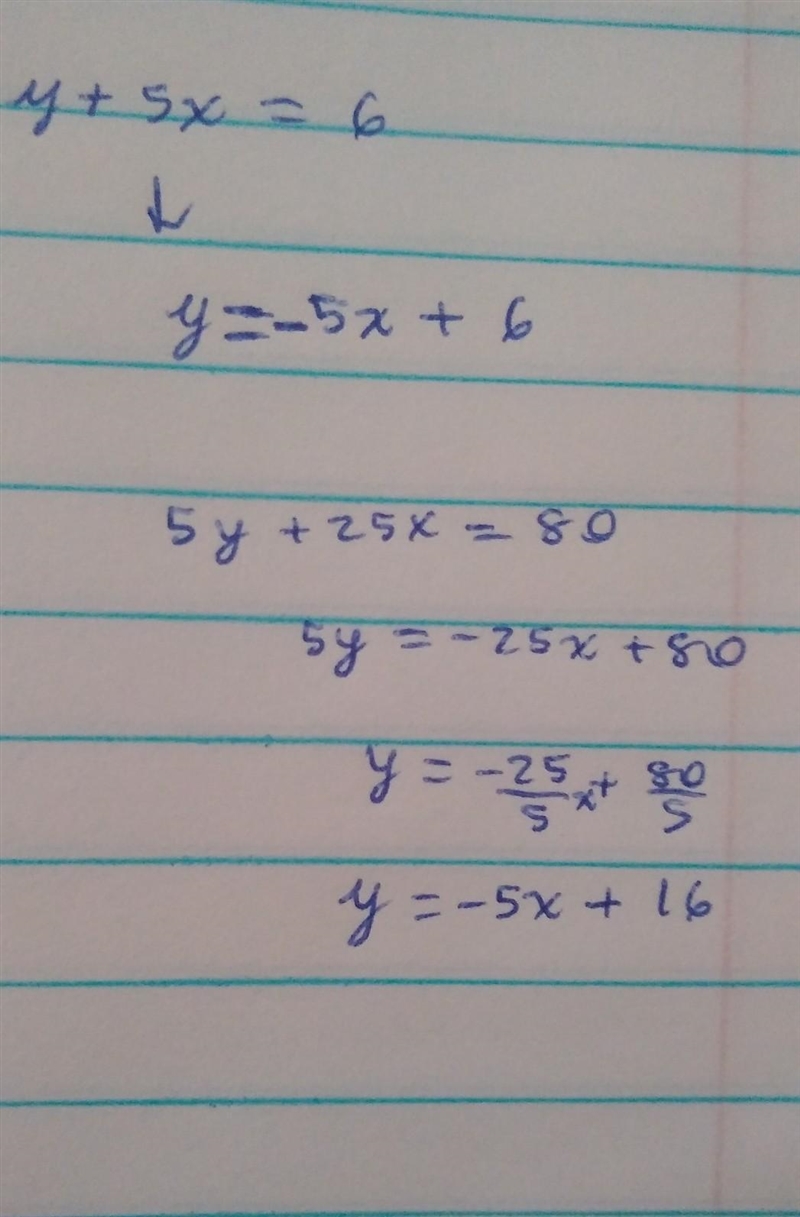 y + 5x = 6
↓
y = -5x + 6
5y + 25x = 80
5y = -25x + 80
y = -25/5 x + 80/5
y = -5x + 16